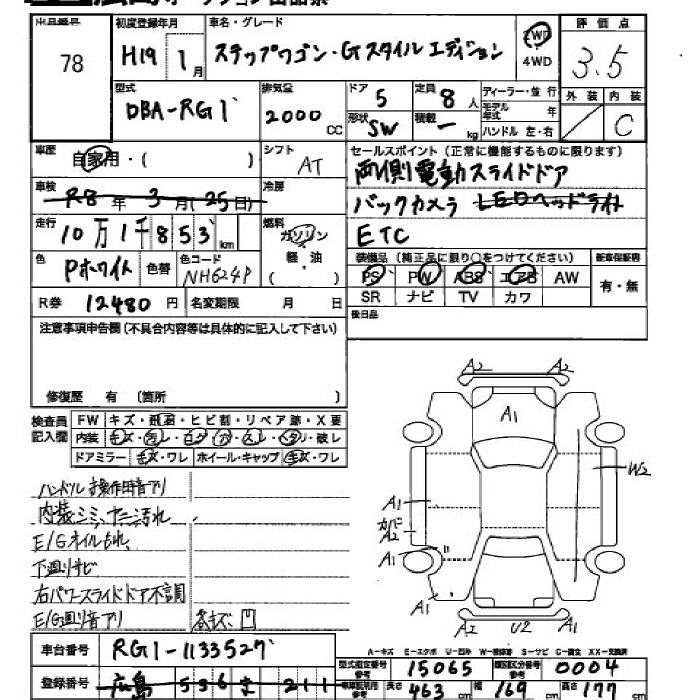 78
初度登録年月 車名・グレード 評価点
H19 1月 ステップワゴン・Gスタイルエディション 2WD 4WD 3.5
型式 排気量 ドア 定員 ディーラー・並行 外装 内装
DBA-RG1 2000CC 5 8人 モデル年式 年 C
形状 SW 積載 ー kg ハンドル 左・右
車歴 シフト セールスポイント (正常に機能するものに限ります)
自家用・( ) AT 両側電動スライドドア
車検 冷房
R8年3月(25日) バックカメラ LEDヘッドライト
走行 燃料
10万1千853km ガソリン 軽・油 ( ) ETC
色 色替 色コード 装備品 (純正品に限り○をつけてください) 新車保証書
Pホワイト NH624P PS PW ABS エアB AW 有・無
SR ナビ TV カワ
R券 12480円 名変期限 月 日
後日品
注意事項申告欄(不具合内容等は具体的に記入して下さい)
修復歴 有 (箇所 )
検査員記入欄 FW キズ・飛石・ヒビ割・リペア跡・X要
内装 キズ・
ドアミラー キズ・ワレ ホイール・キャップ キズ・ワレ
ハンドル操作時音アリ
内装シミ、ヤニ汚れ
E/Gオイルもれ
下廻りサビ
右パワースライドドア不調
E/G廻り音アリ 各キズ、凹
A2 A2
A1
W2
A1
A2
A1
A1 A2 U2 A1
車台番号 RG1-1133527
登録番号 広島 536 ま 211
A-キズ E-エクボ U-凹み S-サビ C-腐食 XX-交換済
型式指定番号 15065 類別区分番号 0004
長さ 463 幅 169 高さ 177